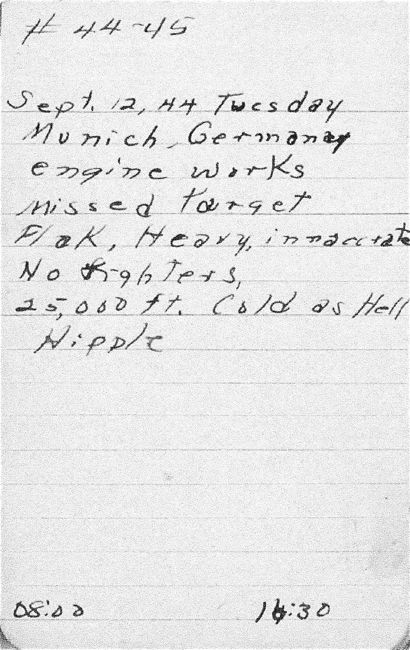 # 44-45
Sept. 12, 44 Tuesday
Munich, Germany
engine works
Missed target
Flak, Heavy, innaccrate
No fighters,
25,000 ft. Cold as Hell
Hipple
08:00 14:30